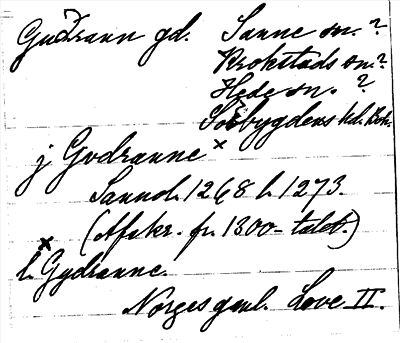 Gudrann gd. Sanne sn.?
Krokstads sn.?
Hede sn. ?
Sörbygdens hd. Boh.
j Gvdranne x
Sannol. 1268 l. 1273.
(Afskr. fr. 1300-talet.)
x
l. Gydranne.
Norges gaml. Love II.